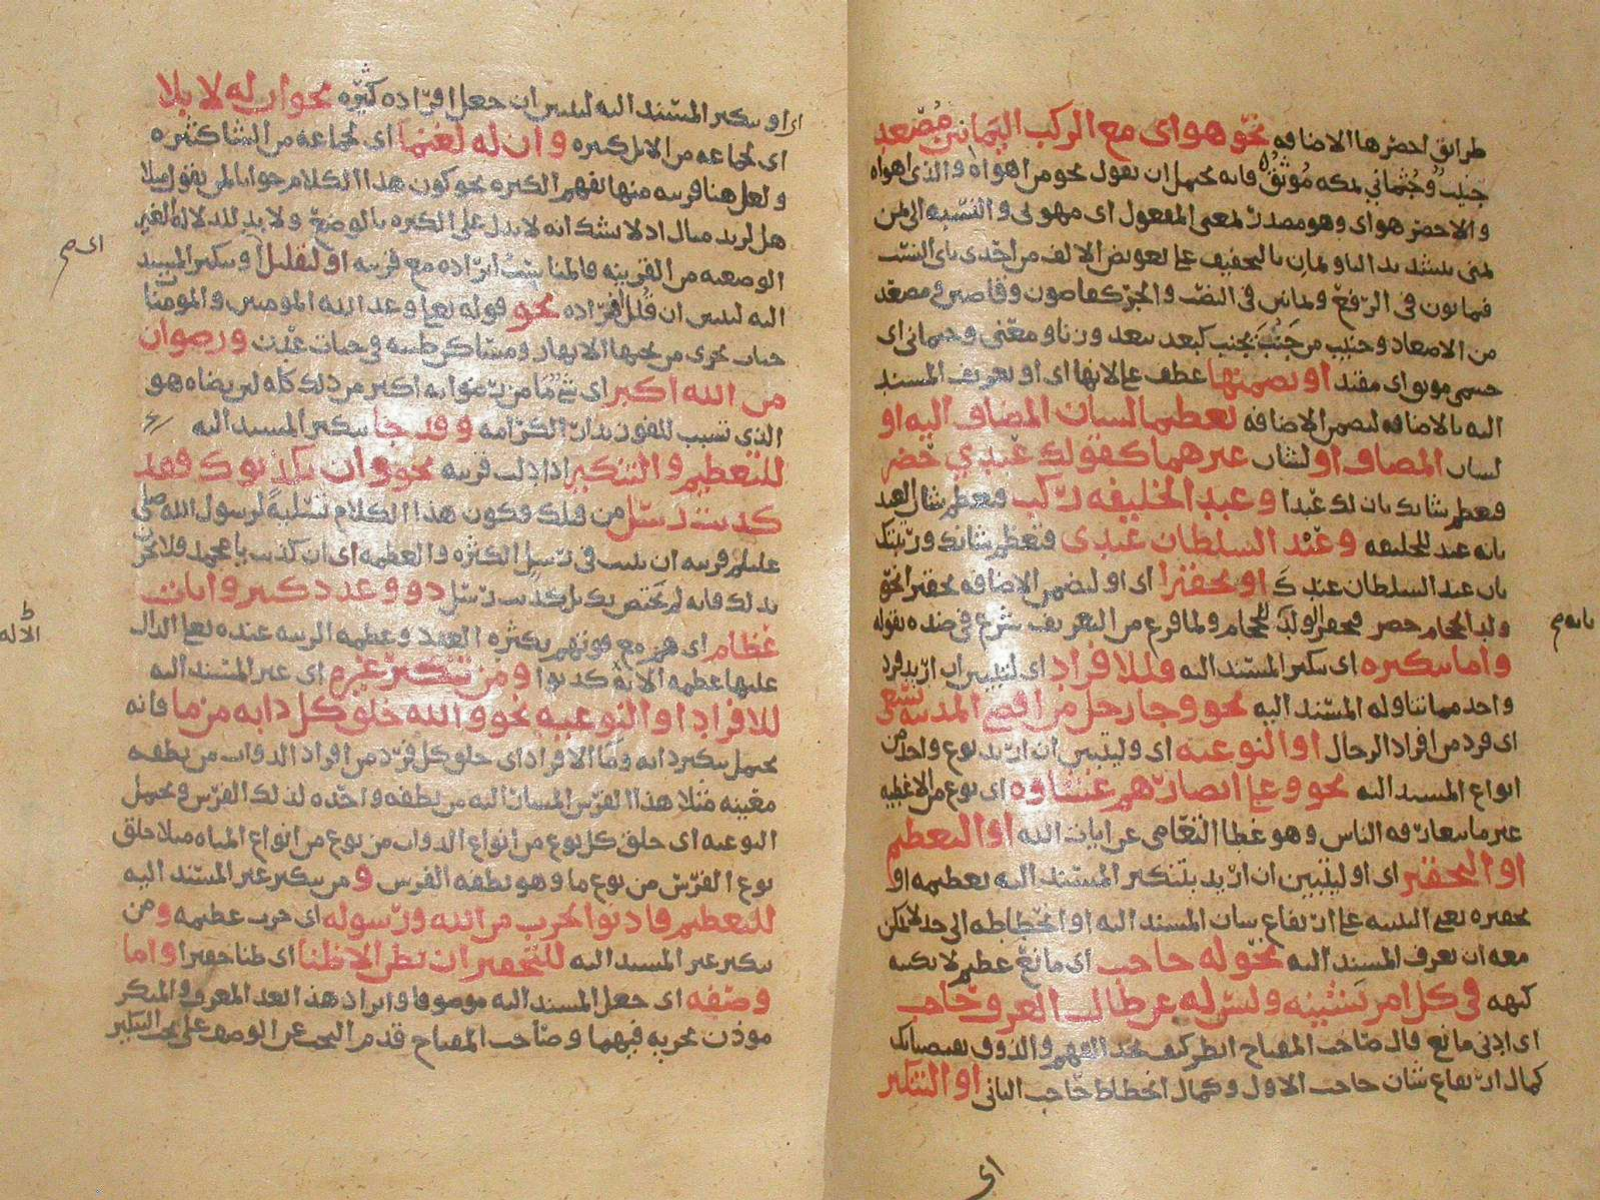 طرائق احضرها الاضافه نحو هواى مع الركب اليمانين مُصْعد
جنيب وجُثماني بمكه مُوثَقُ فانه يحتمل ان يقول نحو من اهواه والذى اهواه
والاحضر هواى وهو مصدر بمعنى المفعول اى مهوىى والنسبه الى اليمن
يمنى بتشديد اليا ويمان بالتخفيف على تعويض الالف من احدى ياى النسب
فيمانون فى الرفع ويمانين فى النصب والجر كقاصون وقاصين ومصعد
من الاصعاد وجنيب من جَنَبَ يجنب كبعد يبعد وزنا ومعنى وجثمانى اى
جسمى موثق اى مقيد او تضمنها عطف على لانها اى او تعريف المسند
اليه بالاضافه لتضمن الاضافه تعظيما لشان المضاف اليه او
لشان المضاف او لشان غيرهما كقولك عبدي حضر
فتعظم شانك بان لك عبدا وعبد الخليفه ركب فتعظم شان العبد
بانه عبد للخليفه وعبد السلطان عندى فتعظم شانك ورتبتك
بان عبد السلطان عندك او تحقيرا اى او لتضمن الاضافه تحقيرا نحو
ولد الحجام حضر فتحقر الولد بانه للحجام ولما فرغ من التعريف شرع فى ضده بقوله
واما تنكيره اى تنكير المسند اليه فللافراد اى لتبيين ان اريد فرد
واحد مما تناوله المسند اليه نحو وجا رجل من اقصى المدينه يسعى
اى فرد من افراد الرجال او النوعيه اى وليتبين ان اريد نوع واحد من
انواع المسند اليه نحو وعلى ابصارهم غشاوه اى نوع من الاغطيه
غير ما يتعارفه الناس وهو غطا التعامى عن ايات الله او التعظيم
او التحقير اى او ليتبين ان اريد بتنكير المسند اليه تعظيمه او
تحقيره يعنى التنبيه على ارتفاع شان المسند اليه او انحطاطه الى حد لا يمكن
معه ان يعرف المسند اليه نحو له حاجب اى مانع عظيم لا يكتنه
كنهه فى كل امر يشينه وليس له عن طالب العرف حاجب
اى ادنى مانع قال صاحب المفتاح انظر كيف تجد الفهم والذوق يقتضيانك
كمال ارتفاع شان حاجب الاول وكمال انحطاط حاجب الثانى او التكثير
اى
اى او تنكير المسند اليه ليتبين ان جعل افراده كثيره نحو ان له لابلا
اى لجماعه من الابل كثيره وان له لغنما اى لجماعه من الشا كثيره
ولعل هنا قرينه منها تفهم الكثره نحو كون هذا الكلام جوابا لمن يقول مثلا
هل لزيد مال اذ لا شك انه لا يدل على الكثره بالوضع ولا بد للدلاله الغير
الوضعيه من القرينه او لتقليل اى او تنكير المسند
اليه ليتبين ان قلل افراده نحو قوله تعالى وعد الله المومنين والمومنات
جنات تجرى من تحتها الانهار ومساكن طيبه فى جنات عدن ورضوان
من الله اكبر اى شى ما من رضوانه اكبر من ذلك كله لان رضاه هو
الذى تسبب للفوز بدار الكرامه وقد جا تنكير المسند اليه
للتعظيم والتكثير اذا دلت قرينه نحو وان يكذبوك فقد
كذبت رسل من قبلك فكون هذا الكلام تسليةً لرسول الله صلى
عليه وسلم قرينه ان تثبت فى رسل الكثره والعظمه اى ان كذبت يا محمد فلا تحزن
بذلك فانه لم يختص بك بل كذبت رسل ذوو عدد كثير وايات
عظام اى هم مع فوتهم بكثره العدد وعظمه الرتبه عنده تعالى الدال
عليها عظمه الايه كذبوا ومن تنكير غيره اى غير المسند اليه
للافراد او النوعيه نحو والله خلق كل دابه من ما فانه
يحتمل تنكير دابه وما الافراد اى خلق كل فرد من افراد الدواب من نطفه
معينه مثلا هذا الفرس المشار اليه من نطفه واحده لذلك الفرس ويحتمل
النوعيه اى خلق كل نوع من انواع الدواب من نوع من انواع المياه مثلا خلق
نوع الفرس من نوع ما وهو نطفه الفرس ومن تنكير غير المسند اليه
للتعظيم فاذنوا بحرب من الله ورسوله اى حرب عظيمه ومن
تنكير غير المسند اليه للتحقير ان نظن الا ظنا اى ظنا حقيرا واما
وصفه اى جعل المسند اليه موصوفا وايراد هذا بعد المعرف والمنكر
موذن بجريه فيهما وصاحب المفتاح قدم البحث عن الوصف على بحث التنكير